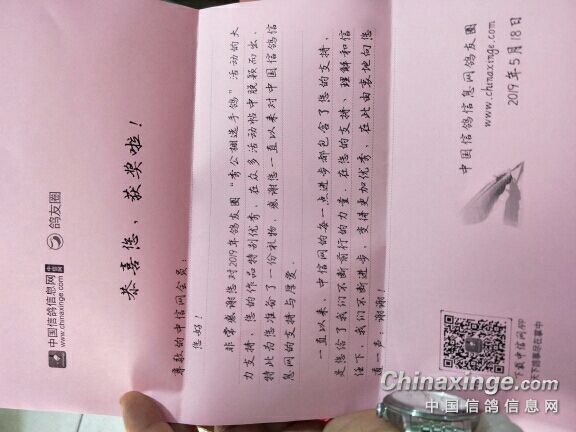 中国信鸽信息网 中信网
www.chinaxinge.com
鸽友圈
恭喜您,获奖啦!
尊敬的中信网会员:
您好!
非常感谢您对2019年鸽友圈“秀公棚选手鸽”活动的大
力支持,您的作品特别优秀,在众多活动帖中脱颖而出,
特此为您准备了一份礼物,感谢您一直以来对中国信鸽信
息网的支持与厚爱。
一直以来,中信网的每一点进步都包含了您的支持,
是您给了我们不断前行的力量,在您的支持、理解和信
任下,我们不断进步,变得更加优秀,在此由衷地向您
道一声:谢谢!
中国信鸽信息网鸽友圈
www.chinaxinge.com
2019年5月18日
下载中信网APP
天下鸽事尽在掌中
Chinaxinge.com
中国信鸽信息网